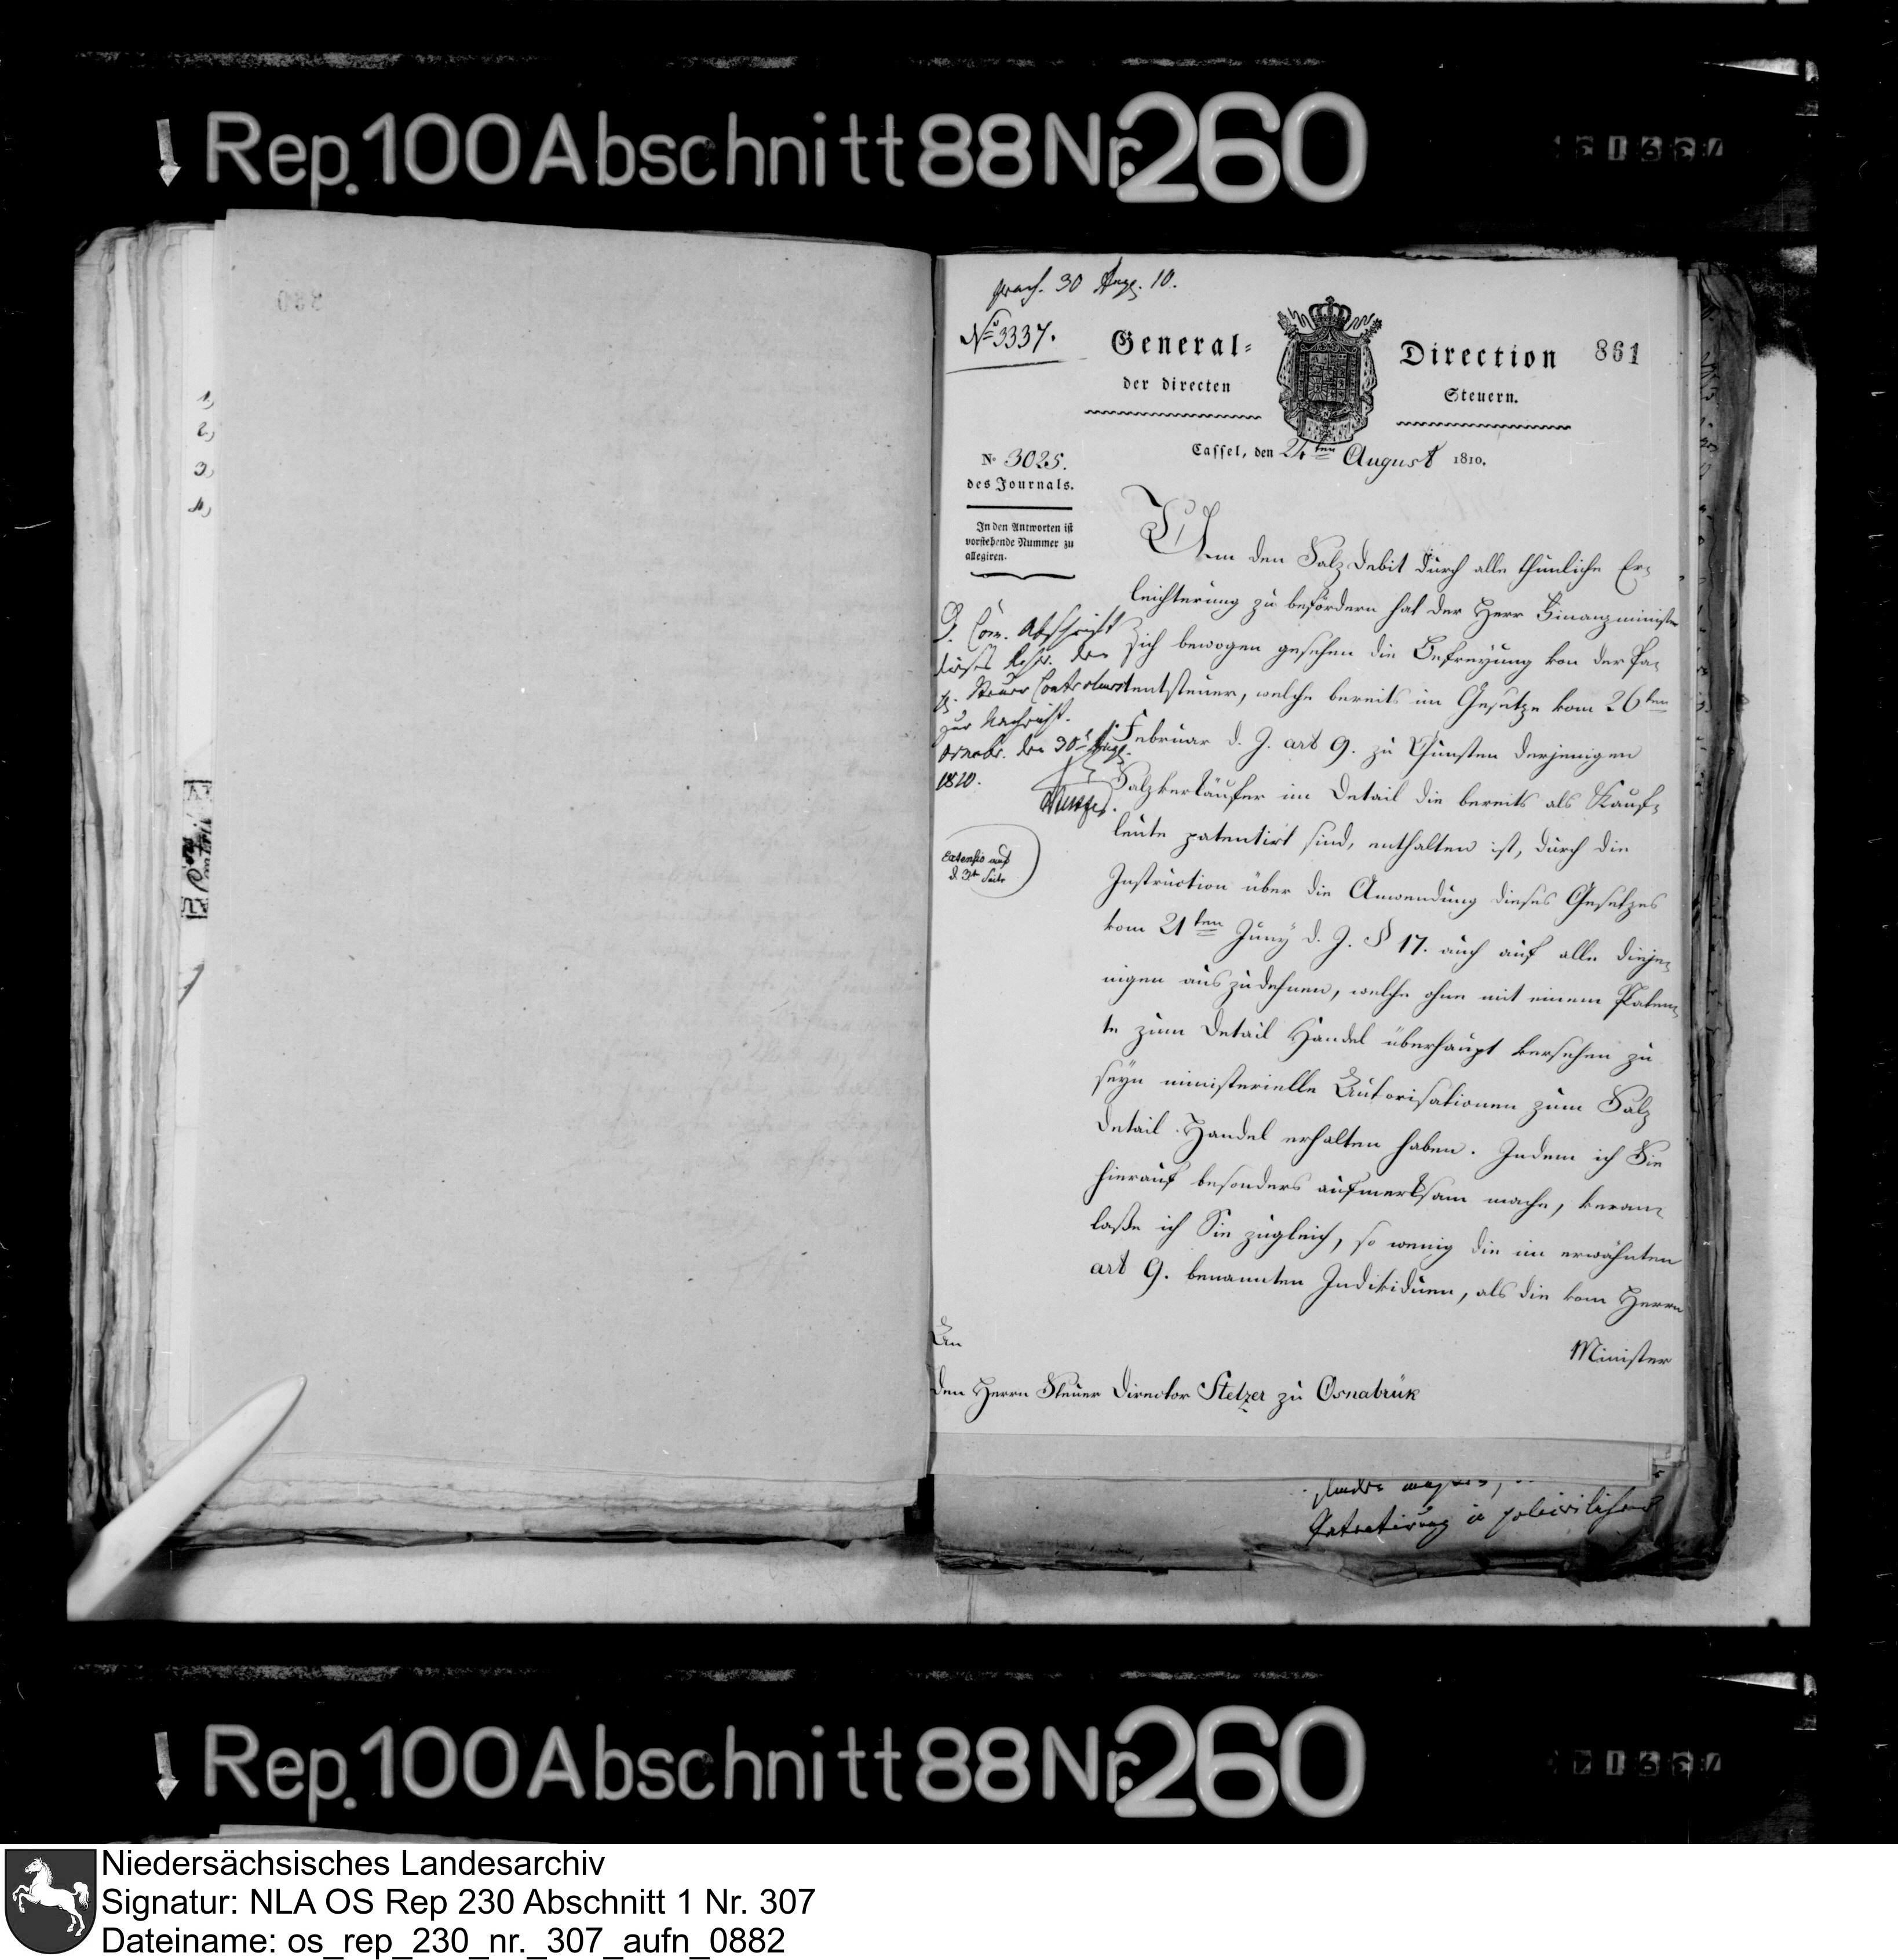 Rep. 100 Abschnitt 88 Nr. 260
praes. 30 Aug. 10.
No 3337.
General= Direction
der directen Steuern.
861
Cassel, den 24ten August 1810.
No 3025.
des Journals.
In den Antworten ist
vorstehende Nummer zu
allegiren.
Um den Salz Debit durch alle thunliche Er=
leichterung zu befördern hat der Herr Finanzminister
sich bewogen gesehen die Befreyung von der Pa=
tentsteuer, welche bereits im Gesetze vom 26ten
Februar d. J. art 9. zu Gunsten derjenigen
Salzverkäufer im Detail die bereits als Kauf=
leute patentirt sind, enthalten ist, durch die
Instruction über die Anwendung dieses Gesetzes
vom 21ten Juny d. J. § 17. auch auf alle dieje=
nigen auszudehnen, welche ohne mit einem Paten=
te zum Detail Handel überhaupt versehen zu
seyn ministerielle Autorisationen zum Salz
Detail Handel erhalten haben. Indem ich Sie
hierauf besonders aufmerksam mache, veran=
laße ich Sie zugleich, so wenig die im erwähnten
art 9. benannten Individuen, als die vom Herrn
Minister
An
den Herrn Steuer Director Stelzer zu Osnabrük
Abschrift
dieses Rescr. den
H. Steuer Controleurs
zur Nachricht.
Osnabr. den 30t Aug.
1810.
Extensio auf
d. 3t Seite
1)
2)
3)
4)
Rep. 100 Abschnitt 88 Nr. 260
Niedersächsisches Landesarchiv
Signatur: NLA OS Rep 230 Abschnitt 1 Nr. 307
Dateiname: os_rep_230_nr._307_aufn_0882